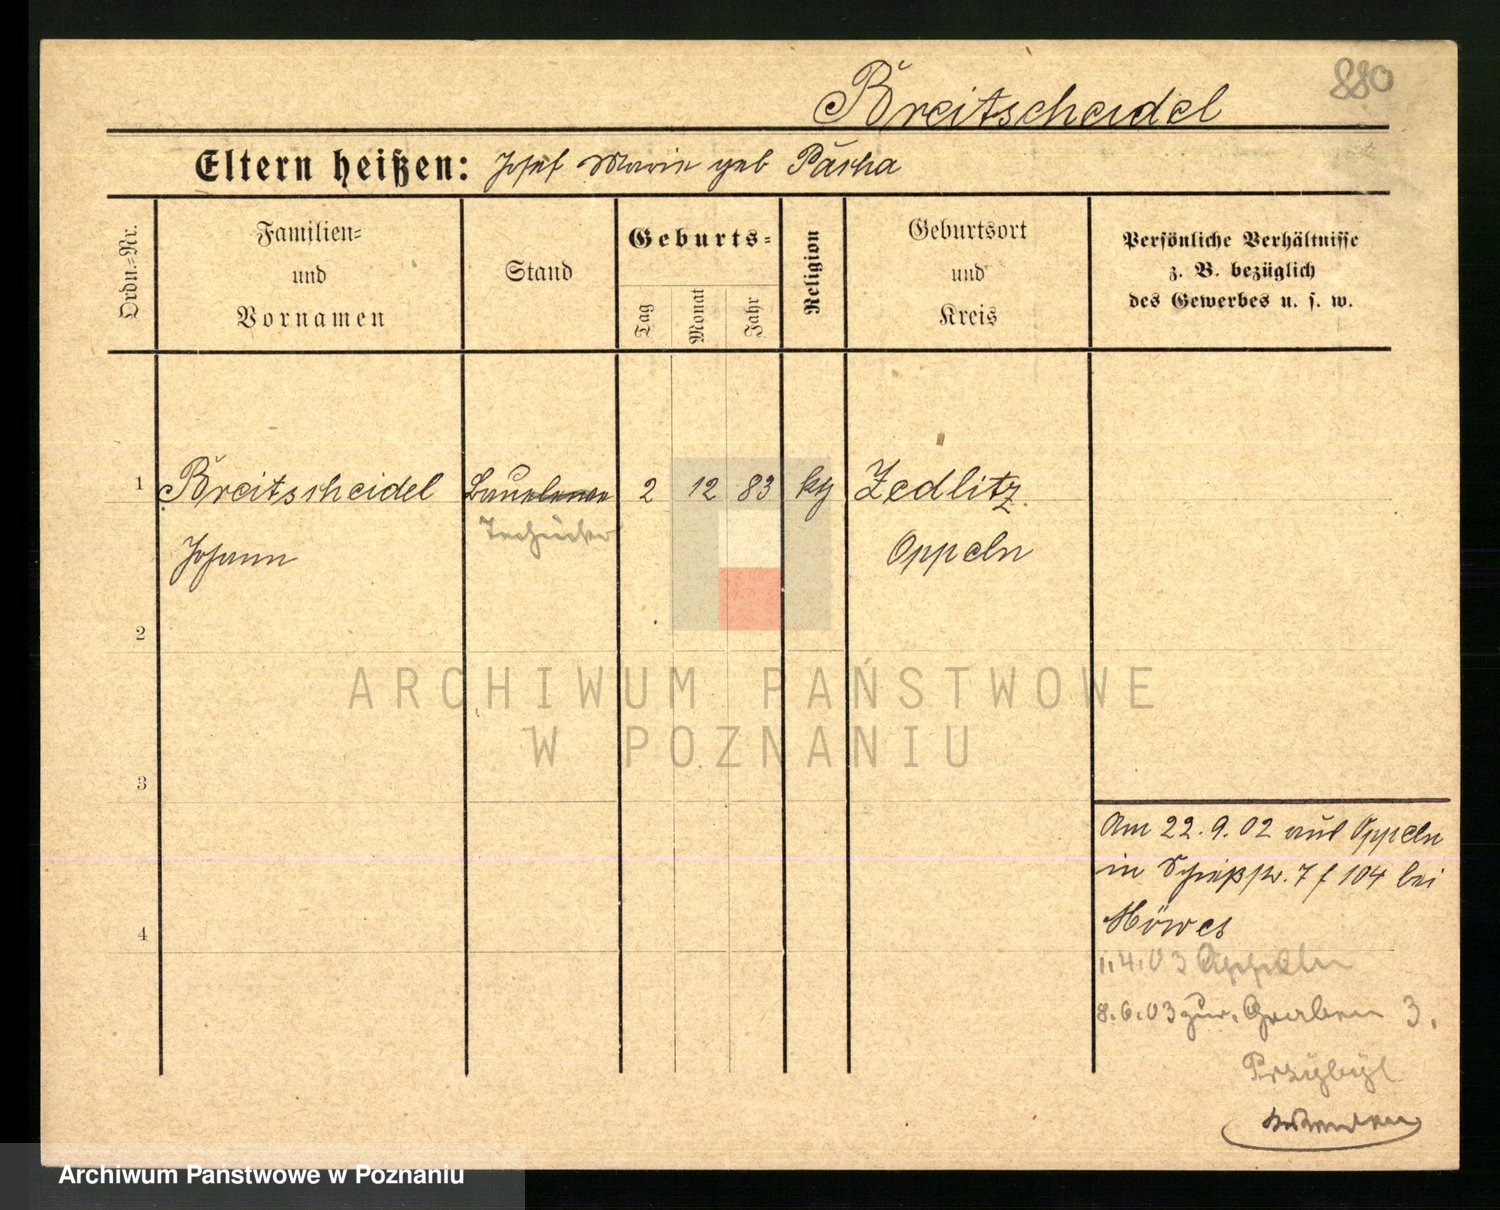 880
Breitscheidel
Eltern heißen: Josef Marie geb Pascha
Ordn.-Nr.
Familien-
und
Vornamen
Stand
Geburts-
Tag
Monat
Jahr
Religion
Geburtsort
und
Kreis
Persönliche Verhältnisse
z. B. bezüglich
des Gewerbes u. s. w.
1 Breitscheidel Baueleve 2 12 83 kg Zedlitz
Techniker
Johann Oppeln
2
ARCHIWUM PAŃSTWOWE
W POZNANIU
3
Am 22.9.02 aus Oppeln
in Schießstr. 7 f 104 bei
Möwes
4
1.4.03 Oppeln
8.6.03 zur. Graben 3.
Przybyl
Archiwum Państwowe w Poznaniu